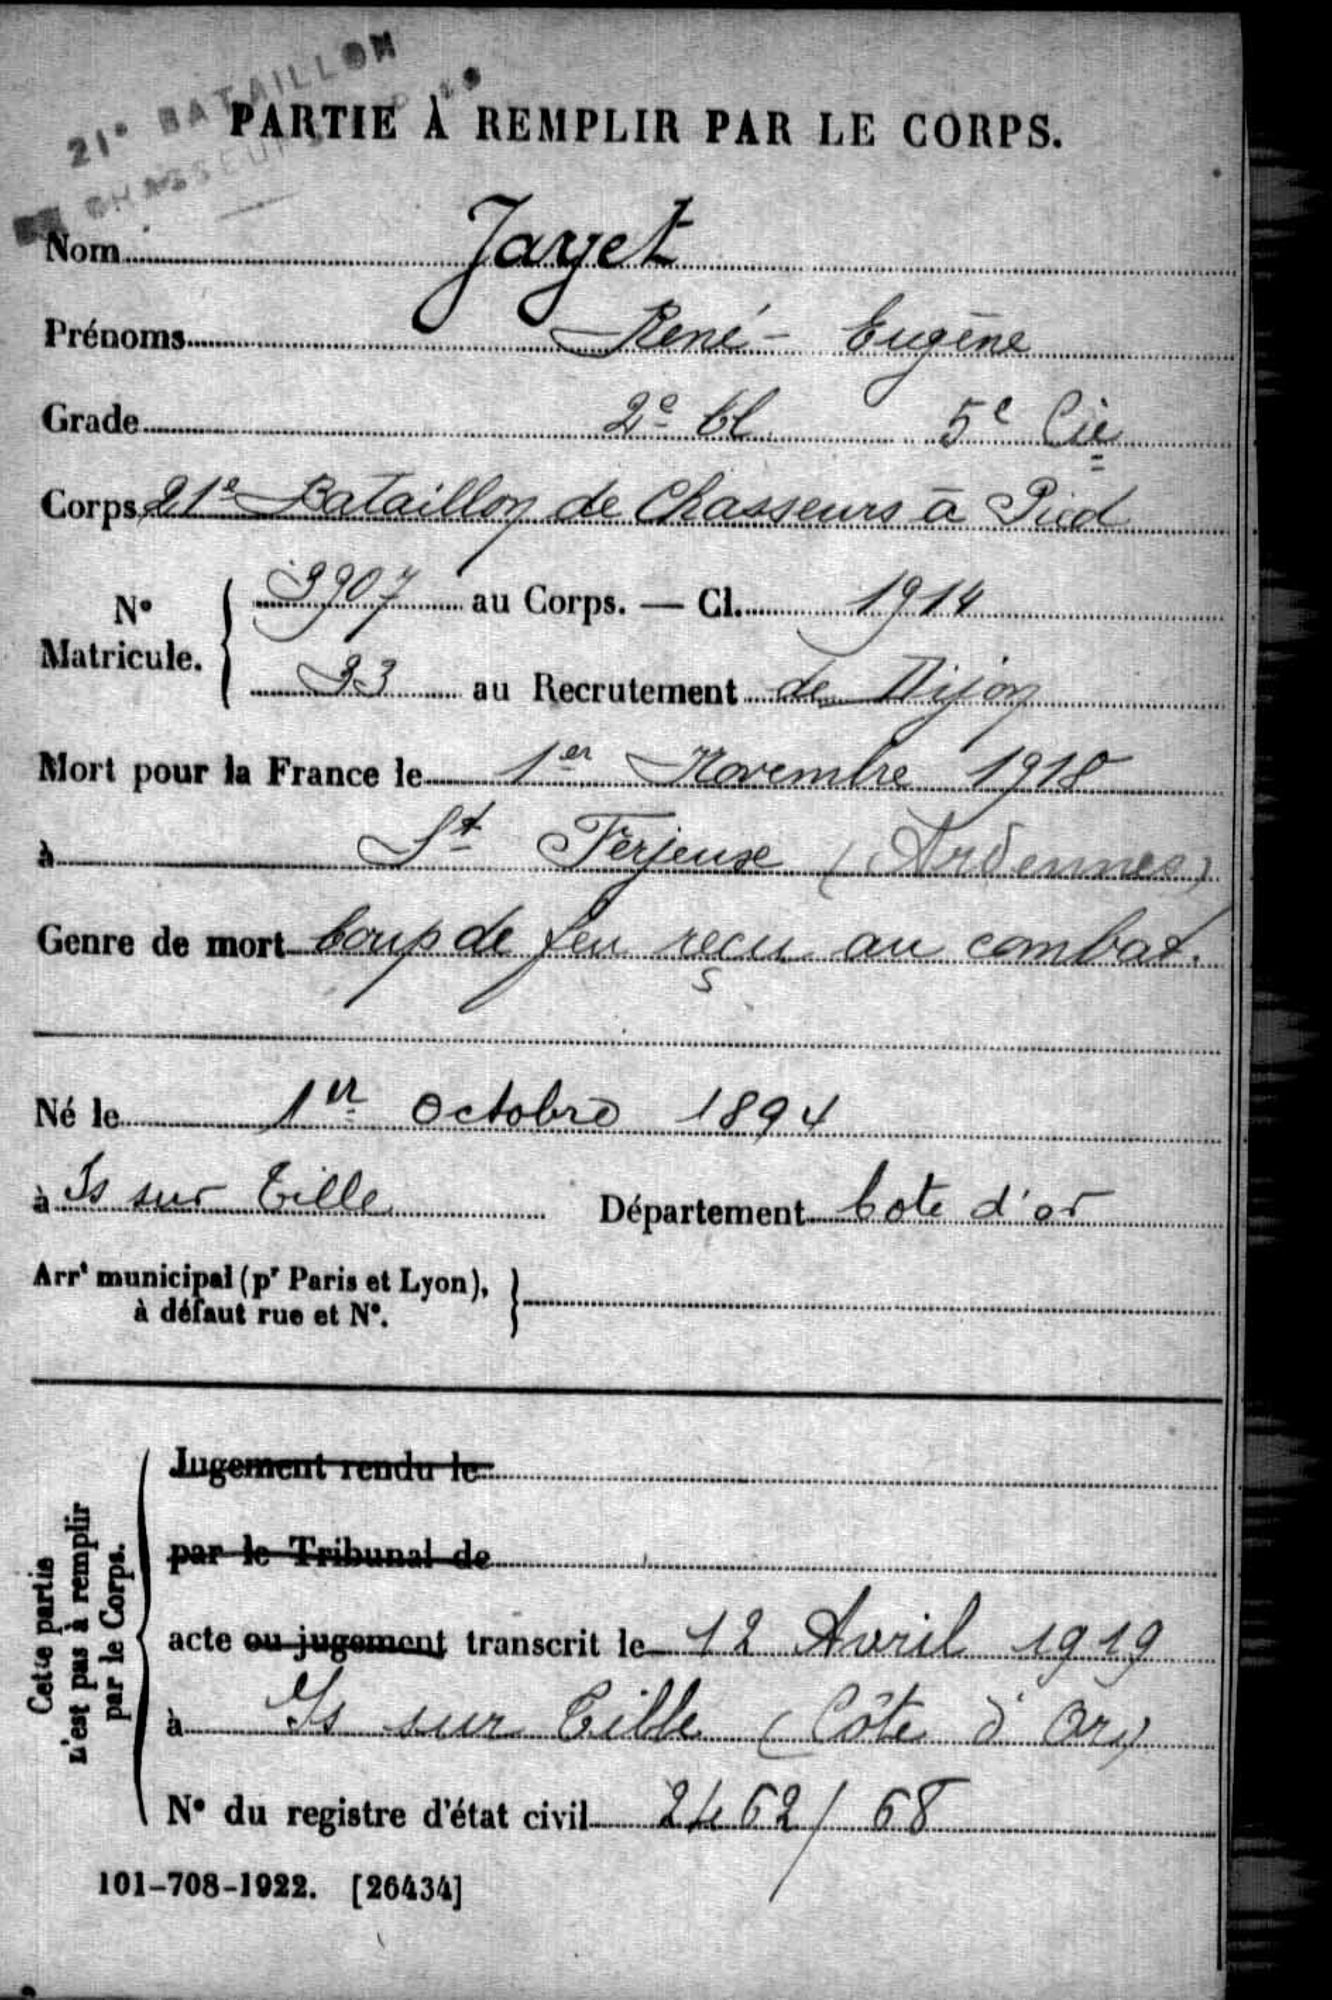 21e BATAILLON
DE CHASSEURS
PARTIE À REMPLIR PAR LE CORPS.
Nom Jayet
Prénoms René - Eugène
Grade 2e Cl 5e Cie
Corps 21e Bataillon de Chasseurs à Pied
No Matricule. { 3907 au Corps. — Cl. 1914
33 au Recrutement de Dijon
Mort pour la France le 1er Novembre 1918
à St Ferjeuse (Ardennes)
Genre de mort Coup de feu reçu au combat.
Né le 1er Octobre 1894
à Is sur Tille Département Cote d'or
Arrt municipal (pr Paris et Lyon),
à défaut rue et No.
Cette partie
n'est pas à remplir
par le Corps.
Jugement rendu le
par le Tribunal de
acte ou jugement transcrit le 12 Avril 1919
à Is sur Tille (Côte d'Or)
No du registre d'état civil 2462/68
101-708-1922. [26434]